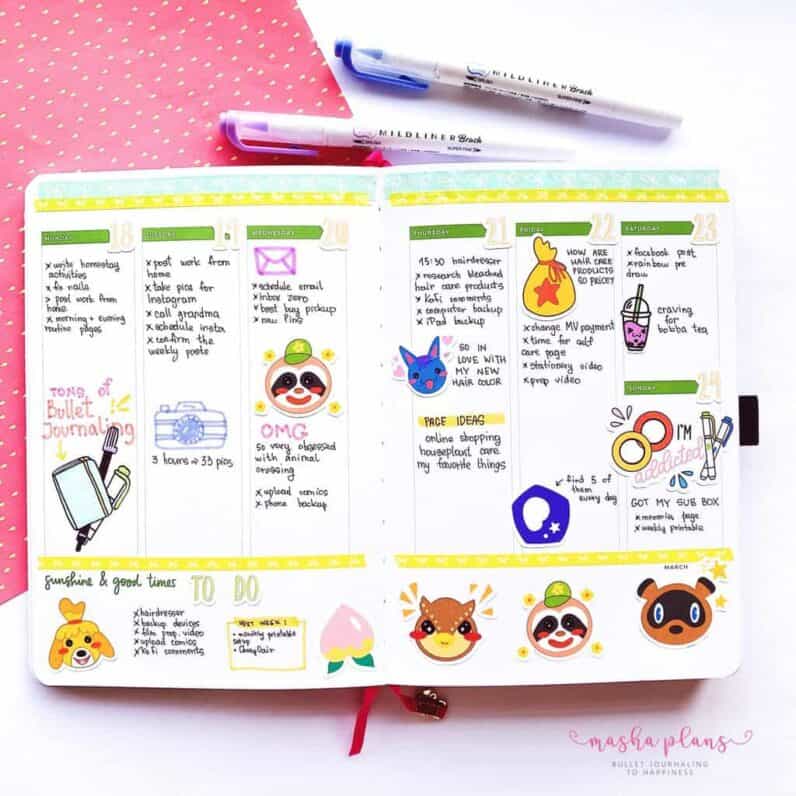 MILDLINER Brush
SUPER FINE
MILDLINER Brush
SUPER FINE
MONDAY 18
x write homestay
activities
x fix nails
x post work from
home
x morning + evening
routine pages
TONS of
Bullet
Journaling
TUESDAY 19
x post work from
home
x take pics for
Instagram
x call grandma
x schedule insta
x confirm the
weekly posts
3 hours = 33 pics
WEDNESDAY 20
x schedule email
x inbox zero
x best buy pickup
x new pins
OMG
so very obsessed
with animal
crossing
x upload comics
x phone backup
THURSDAY 21
15:30 hairdresser
x research bleached
hair care products
x Kofi comments
x computer backup
x iPad backup
SO IN
LOVE WITH
MY NEW
HAIR COLOR
PAGE IDEAS
online shopping
houseplant care
my favorite things
FRIDAY 22
HOW ARE
HAIR CARE
PRODUCTS
SO PRICEY
x change MV payment
x time for add
care page
x stationery video
x prep video
find 5 of
them
every day
SATURDAY 23
x facebook post
x rainbow pre
draw
craving
for
bobba tea
SUNDAY 24
I'M
addicted
GOT MY SUB BOX
x memories page
x weekly printable
sunshine & good times TO DO
x hairdresser
x backup devices
x film prep. video
x upload comics
x Kofi comments
NEXT WEEK:
• monthly printable
setup
MARCH
masha plans
BULLET JOURNALING
TO HAPPINESS